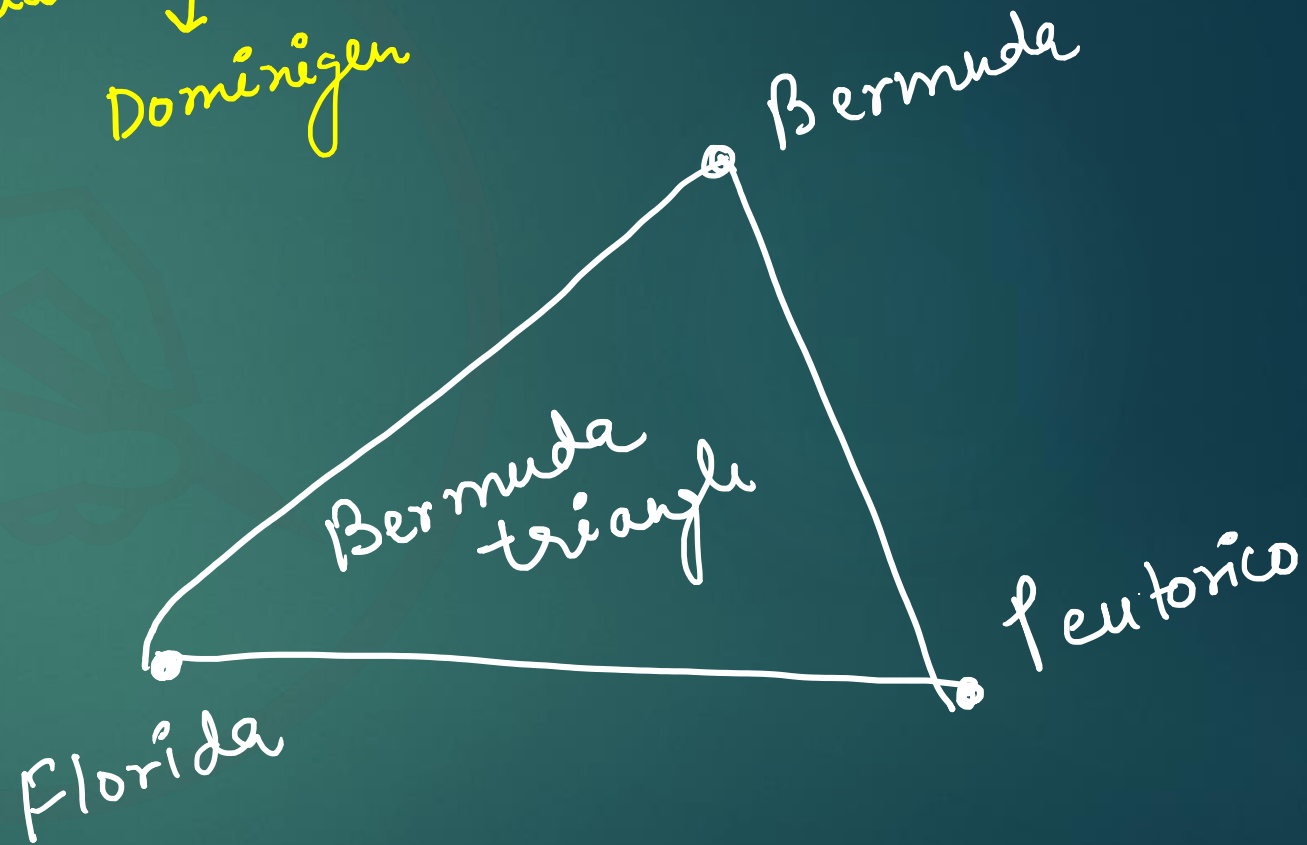 Dominigen
Bermuda
Bermuda
triangle
Peutorico
Florida